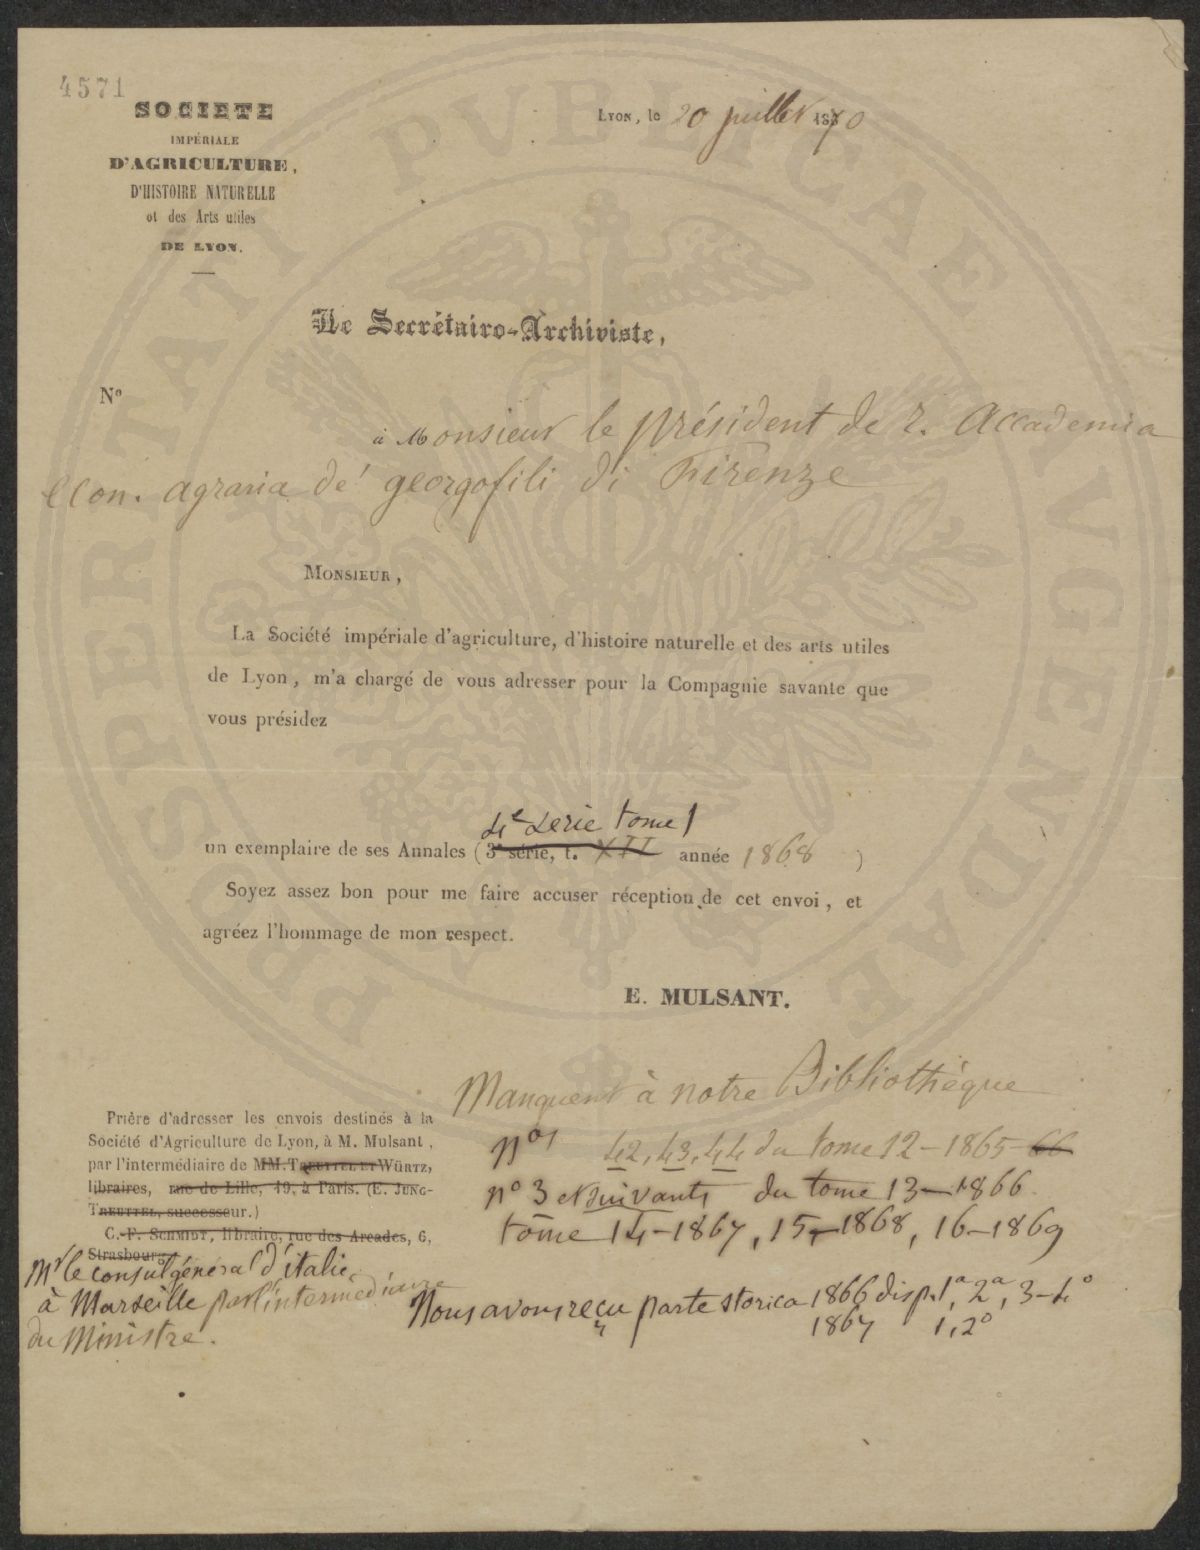 4571
SOCIETE
IMPÉRIALE
D'AGRICULTURE,
D'HISTOIRE NATURELLE
et des Arts utiles
DE LYON.
Lyon, le 20 juillet 1870
Le Secrétaire-Archiviste,
No
à Monsieur le président de r. Accademia
econ. agraria dé georgofili di Firenze
Monsieur,
La Société impériale d'agriculture, d'histoire naturelle et des arts utiles
de Lyon, m'a chargé de vous adresser pour la Compagnie savante que
vous présidez
4e serie tome 1
un exemplaire de ses Annales (3e série, t. XII année 1868 )
Soyez assez bon pour me faire accuser réception de cet envoi, et
agréez l'hommage de mon respect.
E. MULSANT.
Manquent à notre Bibliothéque
nos 42, 43, 44 du tome 12-1865-66
no 3 et suivants du tome 13-1866
tome 14-1867, 15-1868, 16-1869
Nous avons reçu parte storica 1866 disp. 1a, 2a, 3-4o
1867 1, 2o
Prière d'adresser les envois destinés à la
Société d'Agriculture de Lyon, à M. Mulsant,
par l'intermédiaire de MM. Treuttel et Würtz,
libraires, rue de Lille, 19, à Paris. (E. Jung-
Treuttel, successeur.)
C.-F. Schmidt, libraire, rue des Arcades, 6,
Strasbourg.
Mr le consul général d'italie
à Marseille par l'intermédiaire
du Ministre.
PROSPERITATI PVBLICAE AVGENDAE